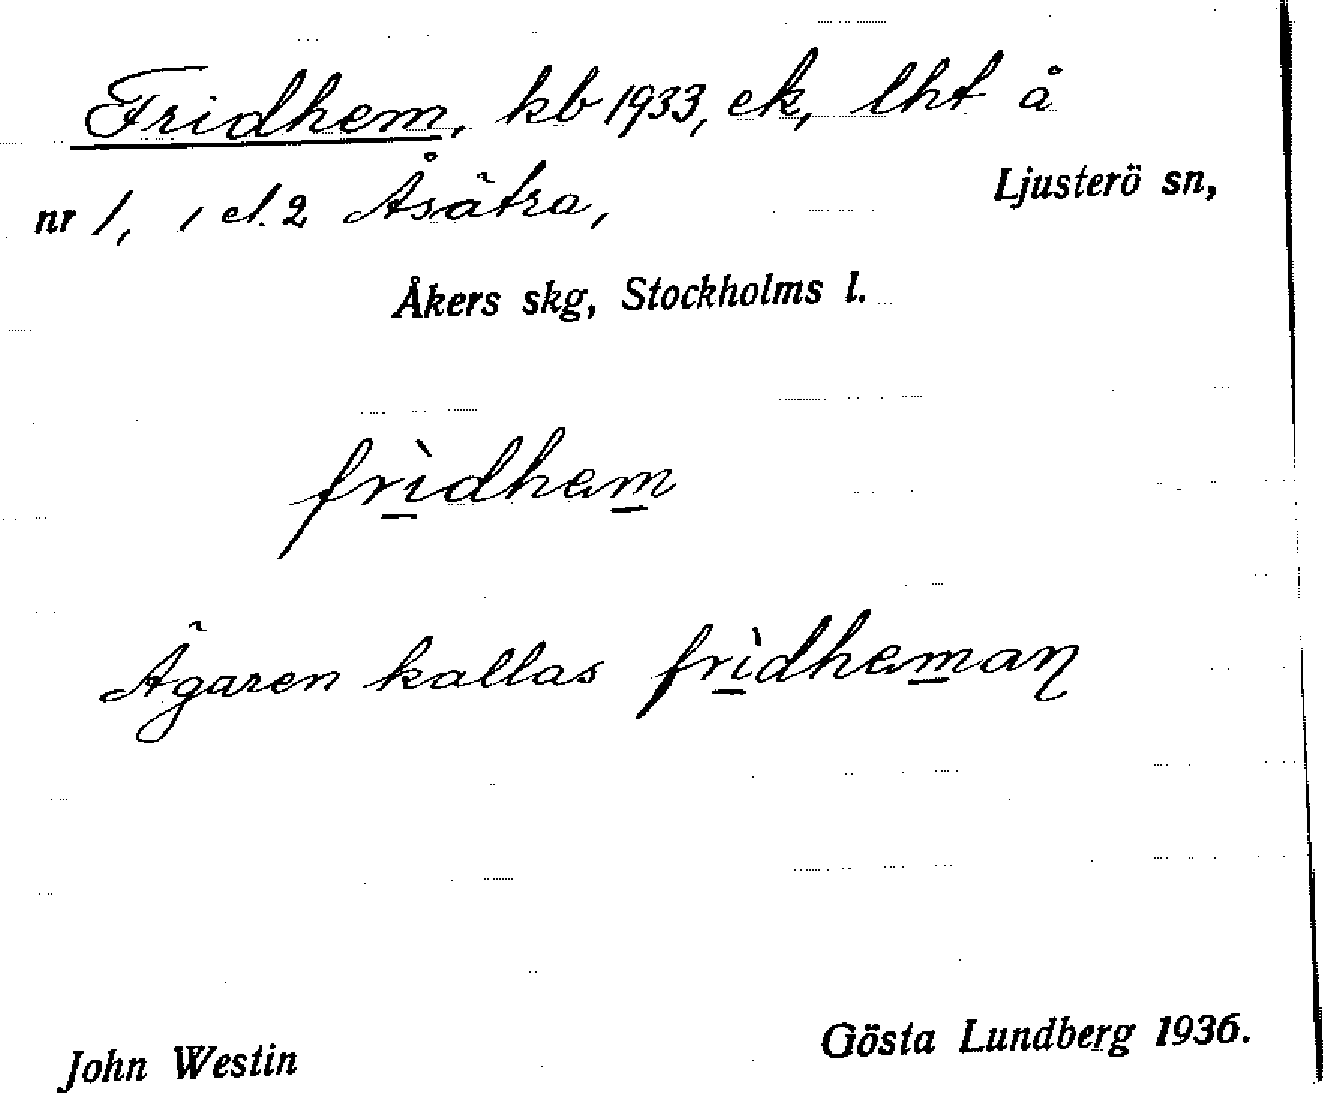 Fridhem, kb 1933, ek, lht å
nr 1, 1 el. 2 Åsätra, Ljusterö sn,
Åkers skg, Stockholms l.
frìdhem
Ägaren kallas frìdheman
John Westin
Gösta Lundberg 1936.